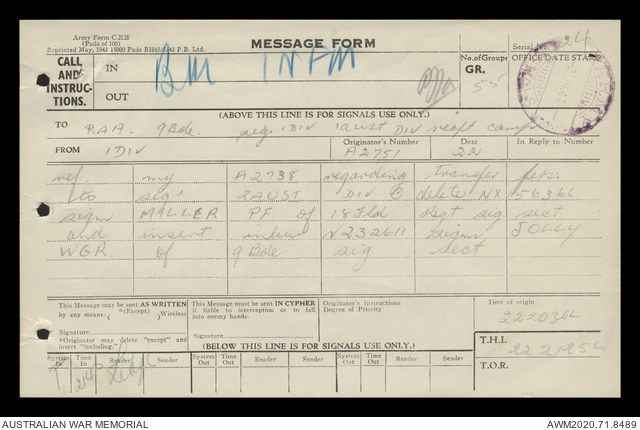 Army Form C.2128
(Pads of 100)
Reprinted May, 1943 15000 Pads P.B. Ltd.
MESSAGE FORM
Serial No. 24
CALL AND INSTRUC- TIONS.
IN
BM INFM
No. of Groups
GR. 55
OFFICE DATE STAMP
OUT
(ABOVE THIS LINE IS FOR SIGNALS USE ONLY.)
TO P.A.A. 9 Bde. sig 1 DIV 1 aust DIV recpt camp
FROM 1 DIV
Originator's Number A2751
Date 22
In Reply to Number
ref. my A2738 regarding transfer pers.
to sigs 2AUST DIV delete NX 156366
sigmn MILLER PF of 18 Fld Regt sig sect
and insert V232611 sigmn JOLLY
WGR. of 9 Bde sig sect
This Message may be sent AS WRITTEN by any means: (Except) Wireless
Signature
*Originator may delete "except" and insert "including."
This Message must be sent IN CYPHER if liable to interception or to fall into enemy hands.
Signature
Originator's Instructions
Degree of Priority
Time of origin
222030L
(BELOW THIS LINE IS FOR SIGNALS USE ONLY.)
T.H.I. 222125L
T.O.R.
System In Time In Reader Sender System Out Time Out Reader Sender System Out Time Out Reader Sender
AUSTRALIAN WAR MEMORIAL
AWM2020.71.8489